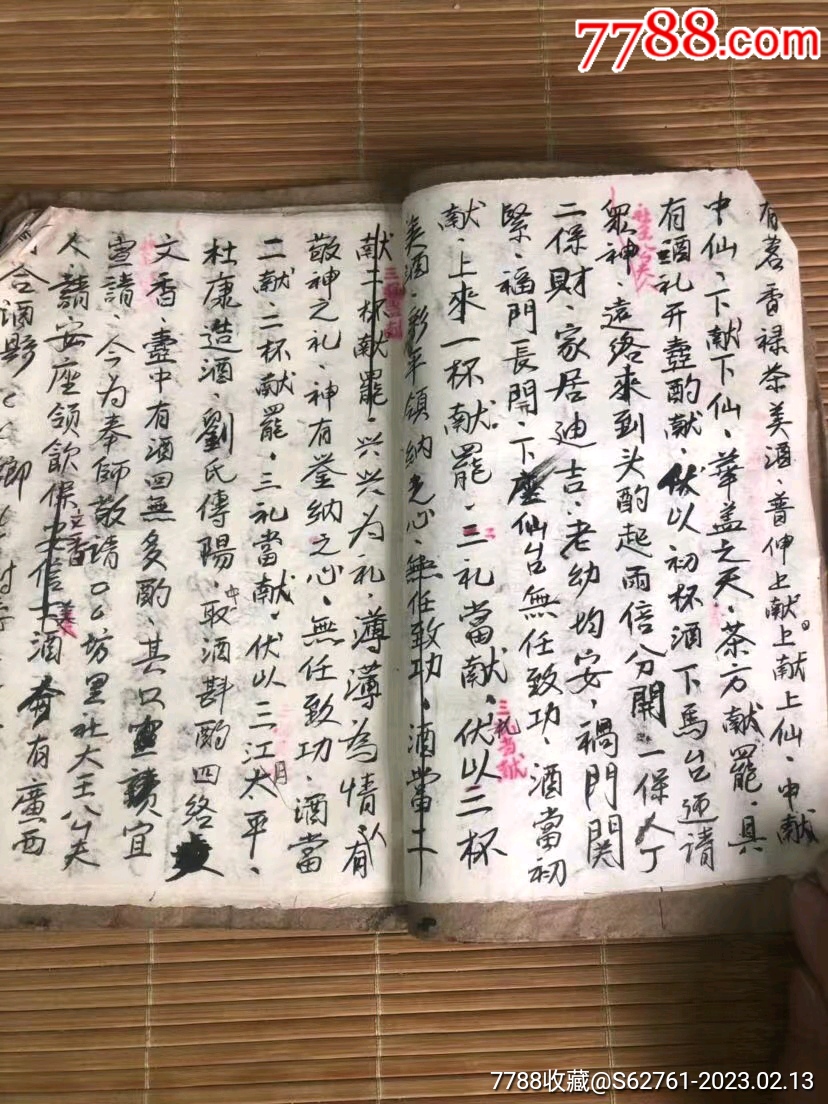 7788.com
有茗香禄茶美酒、普伸上献上献上仙、中献
中仙、下献下仙、華盖之天、茶方献罷、具
有酒礼开壺酌献、伏以初杯酒下馬台迎請
眾神、遠路來到头酌起雨倍分開一保人丁
二保財、家居迪吉、老幼均安、禍門関
緊、福門長開、下座仙台無任致功、酒當初
献、上來一杯献罷、三礼當献、伏以二杯
三礼当献
美酒、彩平領納之心、無任致功、酒當二
献二杯献罷、兴兴为礼、薄薄為情、有
敬神之礼、神有鉴纳之心、無任致功、酒當
二献、二杯献罷、三礼當献、伏以三江太平、
月
杜康造酒、劉氏傳陽、取酒斟酌四絡
中
文香、壺中有酒四無多酌、其口宣讀宜
宣請、今为奉師敬請〇〇坊里社大王公夫
人、請、安座領飲保信下酒 有廣西
文香
合酒縣 鄉 村
7788收藏@S62761-2023.02.13